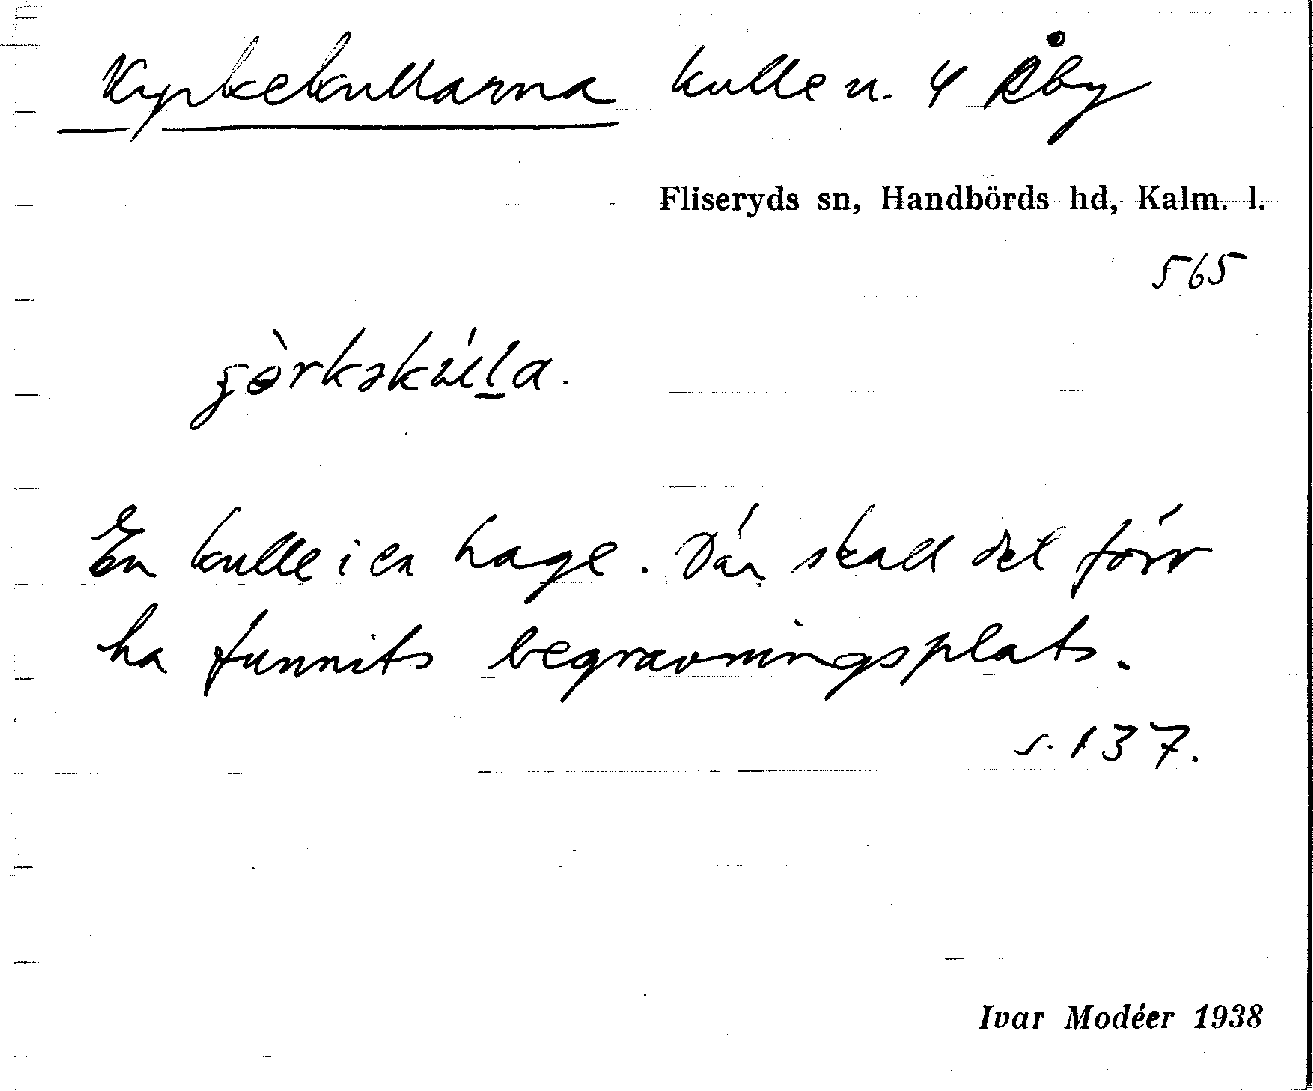 Kyrkekullarna kulle u. 4 Åby
Fliseryds sn, Handbörds hd, Kalm. l.
565
En kulle i en hage. Där skall det förr
ha funnits begravningsplats.
s. 137.
Ivar Modéer 1938